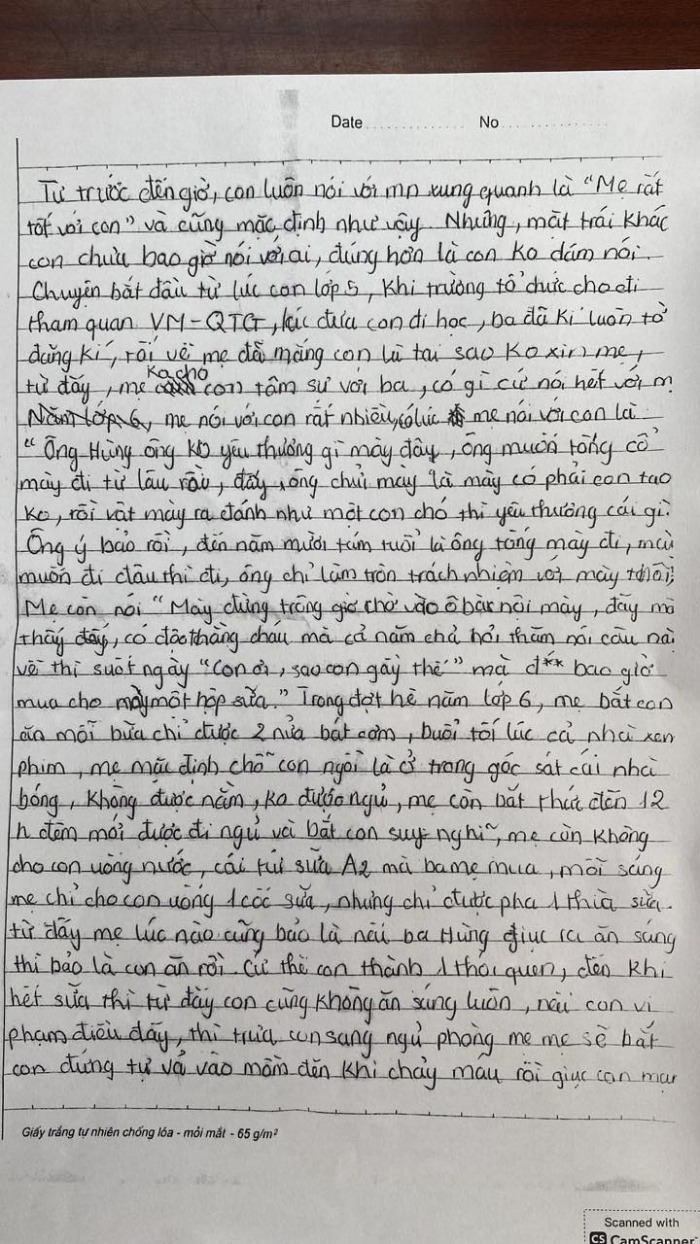 Date No
Từ trước đến giờ, con luôn nói với mn xung quanh là "Mẹ rất
tốt với con" và cũng mặc định như vậy. Nhưng, mặt trái khác
con chưa bao giờ nói với ai, đúng hơn là con ko dám nói.
Chuyện bắt đầu từ lúc con lớp 5, khi trường tổ chức cho đi
tham quan VM-QTG, lúc đưa con đi học, ba đã kí luôn tờ
đăng kí, rồi về mẹ đã mắng con là tại sao ko xin mẹ,
từ đấy, mẹ ko cho con tâm sự với ba, có gì cứ nói hết với m
Năm lớp 6, mẹ nói với con rất nhiều, có lúc mẹ nói với con là
"Ông Hùng ông ko yêu thương gì mày đây, ông muốn tống cổ
mày đi từ lâu rồi, đấy, ông chửi mày là mày có phải con tao
ko, rồi vật mày ra đánh như một con chó thì yêu thương cái gì.
Ông ý bảo rồi, đến năm mười tám tuổi là ông tống mày đi, mày
muốn đi đâu thì đi, ông chỉ làm tròn trách nhiệm với mày thôi"
Mẹ còn nói "Mày đừng trông giờ chờ vào ô bà nội mày, đấy mà
thấy đấy, có độc thằng cháu mà cả năm chả hỏi thăm nói câu nào
về thì suốt ngày "Con ơi, sao con gầy thế" mà đ** bao giờ
mua cho mày một hộp sữa." Trong đợt hè năm lớp 6, mẹ bắt con
ăn mỗi bữa chỉ được 2 nửa bát cơm, buổi tối lúc cả nhà xem
phim, mẹ mặc định chỗ con ngồi là ở trong góc sát cái nhà
bóng, không được nằm, ko được ngủ, mẹ còn bắt thức đến 12
h đêm mới được đi ngủ và bắt con suy nghĩ, mẹ còn không
cho con uống nước, cái túi sữa A2 mà ba mẹ mua, mỗi sáng
mẹ chỉ cho con uống 1 cốc sữa, nhưng chỉ được pha 1 thìa sữa.
từ đấy mẹ lúc nào cũng bảo là nếu ba Hùng giục ra ăn sáng
thì bảo là con ăn rồi. Cứ thế con thành 1 thói quen, đến khi
hết sữa thì từ đấy con cũng không ăn sáng luôn, nếu con vi
phạm điều đấy, thì trưa con sang ngủ phòng mẹ mẹ sẽ bắt
con đứng tự vả vào mồm đến khi chảy máu rồi giục con mau
Giấy trắng tự nhiên chống lóa - mỏi mắt - 65 g/m²
Scanned with
CS CamScanner